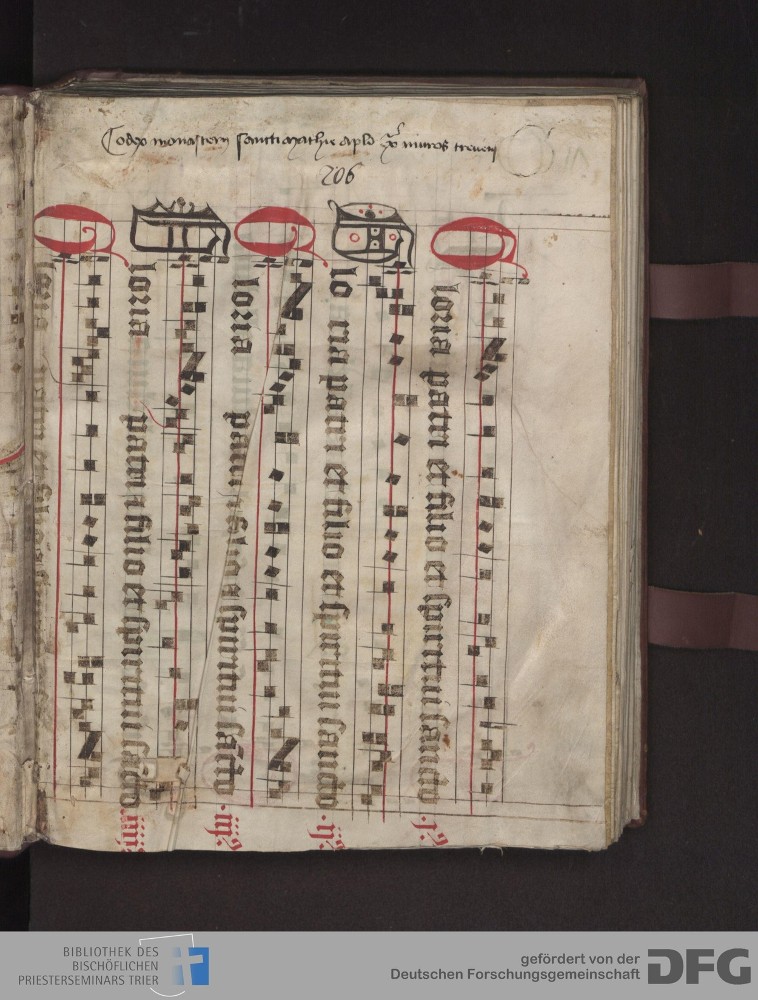 Codex monasterij sancti mathie apli ex muros treveren
206
Gloria patri et filio et spiritui sancto .i.
Gloria patri et filio et spiritui sancto .ij.
Gloria patri et filio et spiritui sancto .iij.
Gloria patri et filio et spiritui sancto .iiij.
BIBLIOTHEK DES
BISCHÖFLICHEN
PRIESTERSEMINARS TRIER
gefördert von der
Deutschen Forschungsgemeinschaft
DFG